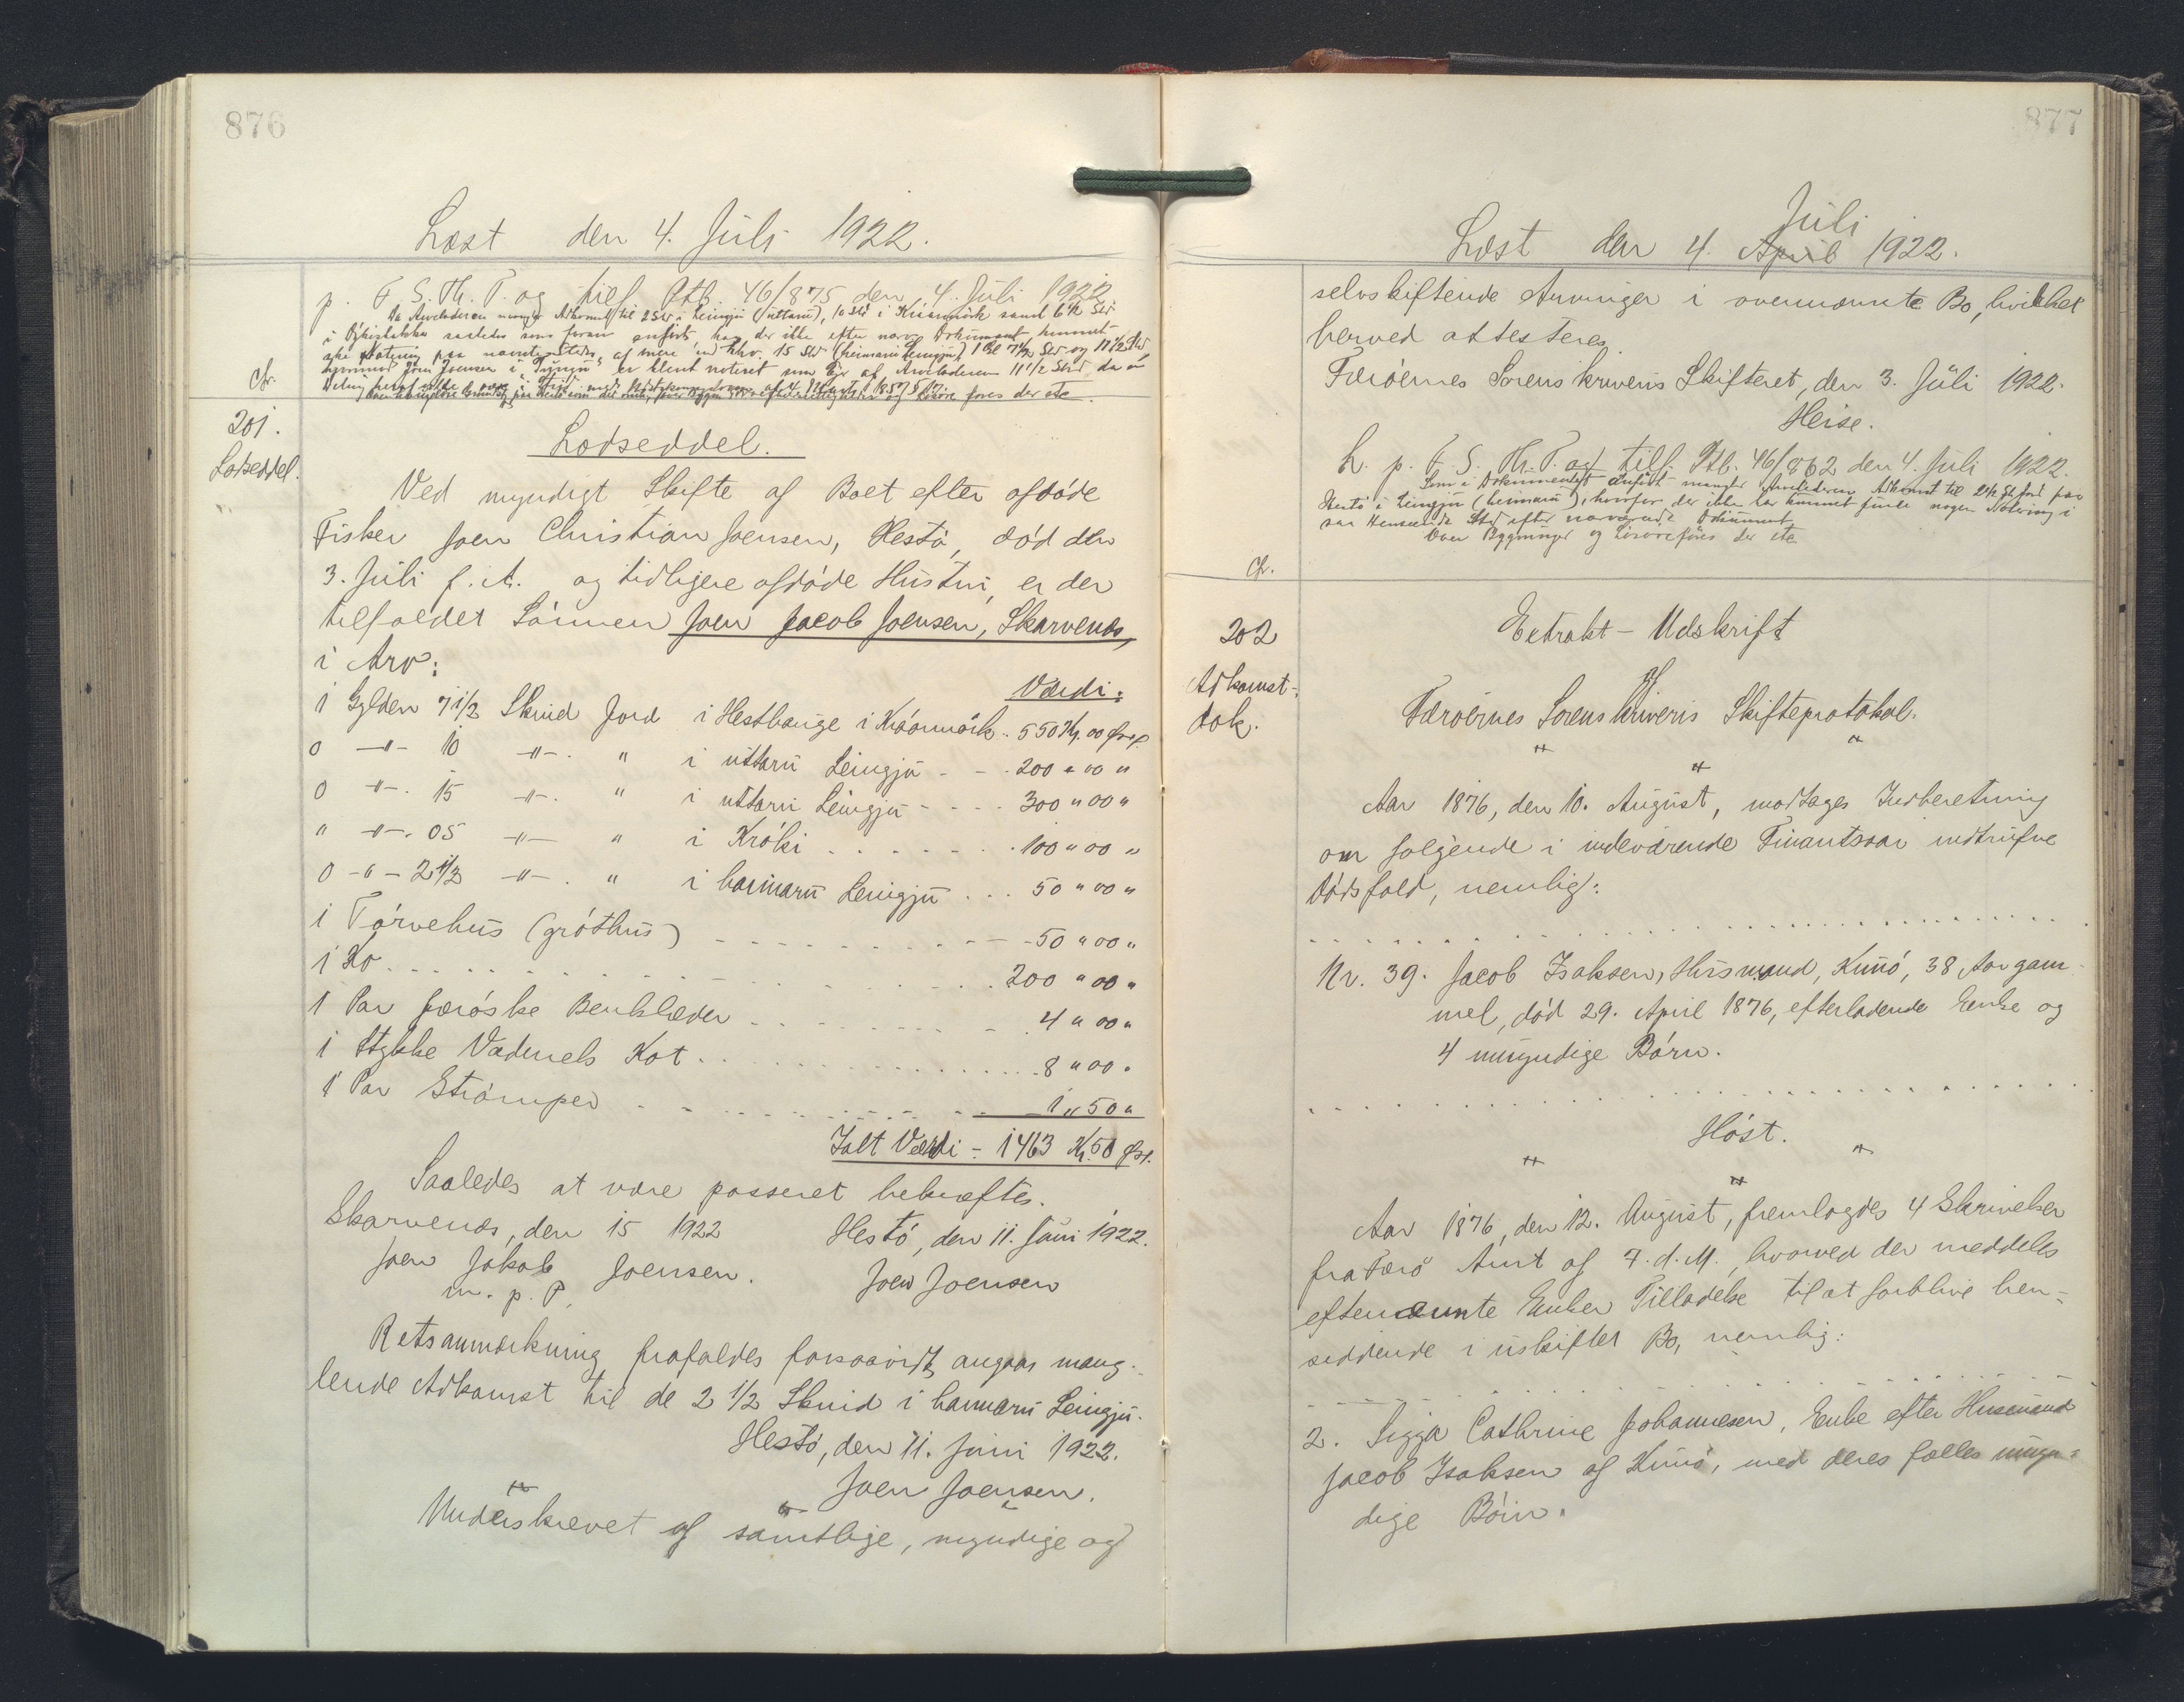 876
Læst den 4. Juli 1922.
p. F. S. Th. P. og tilf. Ptb. 46/875 den 4. Juli 1922
Da Arveladeren mangler Adkomst til 2 Skd i Leingjú (uttaru), 10 Skd i Kráarmörk samt 6½ Skd
cfr.
201.
Lodseddel.
Lodseddel.
Ved myndigt Skifte af Boet efter afdöde
Fisker Joen Christian Joensen, Hestö, död den
3. Juli f. A. og tidligere afdöde Hustru, er der
tilfaldet Sönnen Joen Jacob Joensen, Skarvenæs,
i Arv:
Værdi:
1 Gylden 7 1/2 Skind Jord i Hesthauge i Kráarmörk .. 550 Kr. 00 Øre
0 -"- 10 -"- . " i uttaru Leingju - - . 200 " 00 "
0 -"-. 15 -"-. " i uttaru Leingju - - - - 300 " 00 "
" -"-. 05 -"- " i Króki . . . . . . . 100 " 00 "
0 -"- 2 1/2 -"-. " i haimaru Leingju . . . 50 " 00 "
1 Törvehus (gróthus) - - - - - - - - - - - 50 " 00 "
1 Ko . . . . . . . . . . . . . . . . 200 " 00 "
1 Par færöske Benklæder . . . . . . . . - . 4 " 00 "
1 Stykke Vadmels Kot . . . . . . . . . . . . . 8 " 00 "
1 Par Strömper - - - - - - - - - - 1 " 50 "
Ialt Værdi - 1463 Kr. 50 Øre.
Saaledes at være passeret bekræftes.
Skarvenæs, den 15 1922 Hestö, den 11. Juni 1922.
Joen Jakob Joensen. Joen Joensen
m. p. P.
Retsanmærkning frafaldes forsaavidt angaar mang-
lende Adkomst til de 2 1/2 Skind i hamaru Leingju.
Hestö, den 11. Juni 1922.
Joen Joensen.
" " "
Underskrevet af samtlige, myndige og
877
Juli
Læst den 4. April 1922.
selvskiftende Arvinger i ovennævnte Bo, hvilket
herved attesteres.
Færöernes Sorenskriveris Skifteret, den 3. Juli 1922.
Heise.
L. p. F. S. Th. P. og tilf. Ptb. 46/862 den 4. Juli 1922.
Som i Dokumentet anfört mangler Arveladeren Adkomst til 2½ Sk Jord paa
Hestö i Leingju (heimaru), hvorfor der ikke har kunnet finde nogen Notering i
saa Henseende Sted efter nærværende Dokument.
Over Bygninger og Lösöre föres der ete
cfr.
202
Adkomst-
dok.
Extrakt - Udskrift
af
Færöernes Sorenskriveris Skifteprotokol.
" " "
Aar 1876, den 10. August, modtages Indberetning
om fölgende i indeværende Finantsaar indtrufne
Dödsfald, nemlig:
. . . . . . . . . . . . . . . . . . . .
Nr. 39. Jacob Isaksen, Husmand, Kunö, 38 Aar gam-
mel, död 29. April 1876, efterladende Enke og
4 umyndige Börn.
. . . . . . . . . . . . . . . . . . . .
Höst.
" " "
Aar 1876, den 12. August, fremlagdes 4 Skrivelser
fra Færö Amt af 7. d. M., hvorved der meddeles
efternævnte Enker Tilladelse til at forblive hen-
siddende i uskiftet Bo, nemlig:
. . . . . . . . . . . . . . . . . . . .
2. Sigga Cathrine Johannesen, Enke efter Husmand
Jacob Isaksen af Kunö, med deres fælles umyn-
dige Börn.